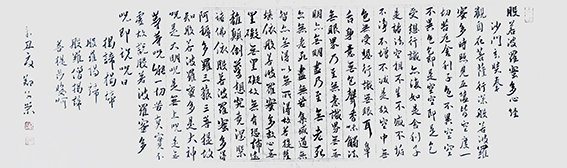 般若波羅蜜多心經
沙門玄奘
觀自在菩薩行深般若波羅
蜜多時照見五蘊皆空度一
切苦厄舍利子色不異空空
不異色色即是空空即是色
受想行識亦復如是舍利子
是諸法空相不生不滅不垢
不淨不增不減是故空中無
色無受想行識無眼耳鼻
舌身意無色聲香味觸法
無眼界乃至無意識界無無
明亦無無明盡乃至無老死
亦無老死盡無苦集滅道無
智亦無得以無所得故菩提薩
埵依般若波羅蜜多故心無
罣礙無罣礙故無有恐怖遠
離顛倒夢想究竟涅槃三世
諸佛依般若波羅蜜多故得
阿耨多羅三藐三菩提故
知般若波羅蜜多是大神
咒是大明咒是無上咒是無
等等咒能除一切苦真實不
虛故說般若波羅蜜多
咒即說咒曰
揭諦揭諦
般羅揭諦
般羅僧揭諦
菩提薩婆訶
丑夏